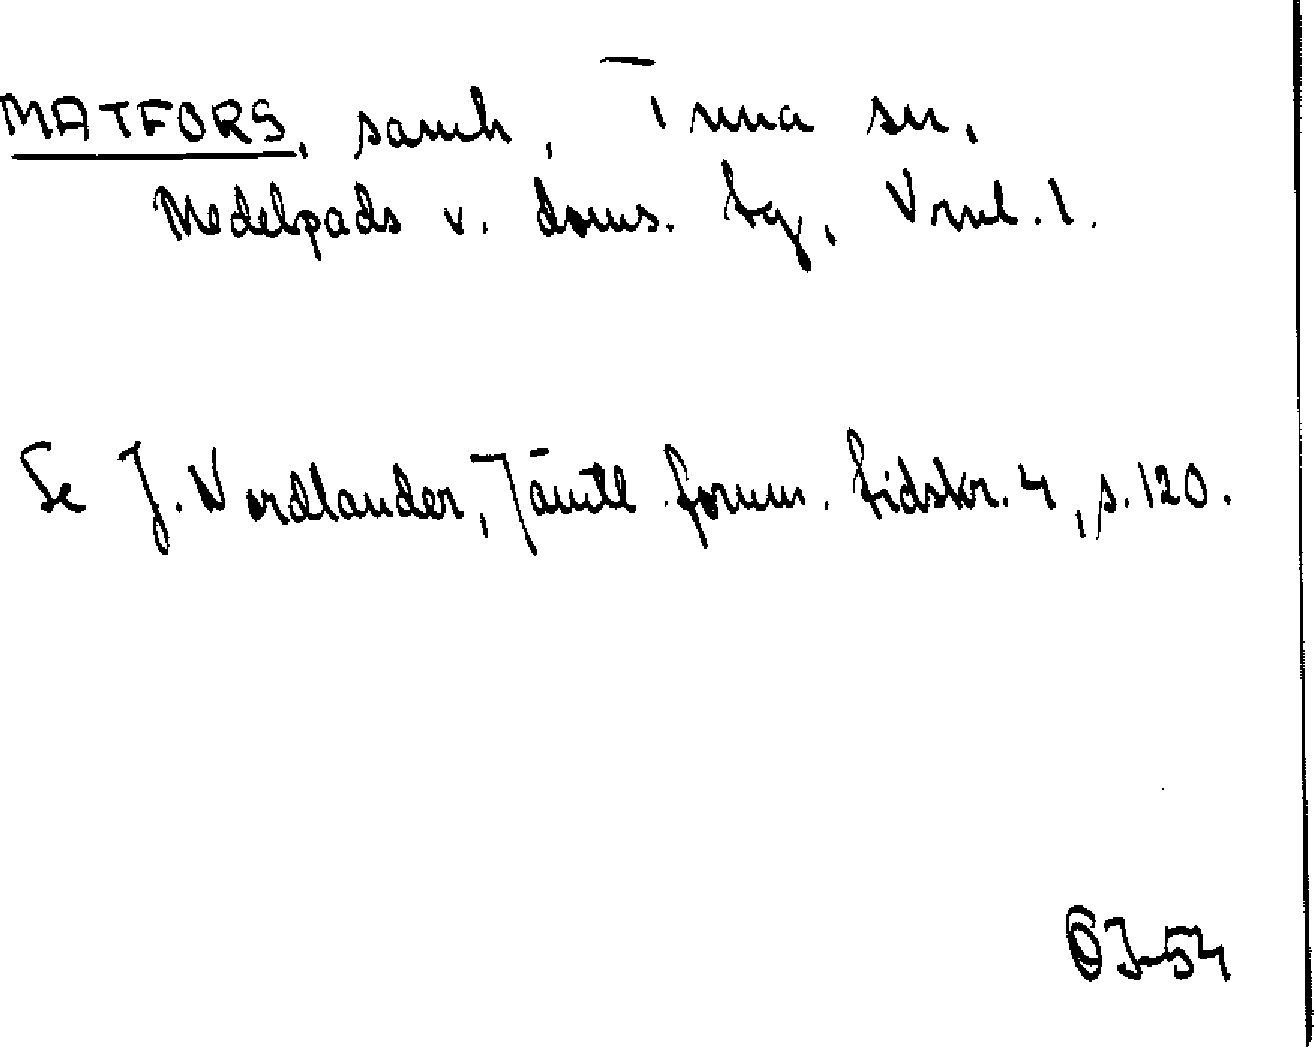 MATFORS, samh, Tuna sn,
Medelpads v. doms. tg, Vrnl. l.
Se J. Nordlander, Jämtl. fornm. tidskr. 4, s. 120.
ÖJ-54